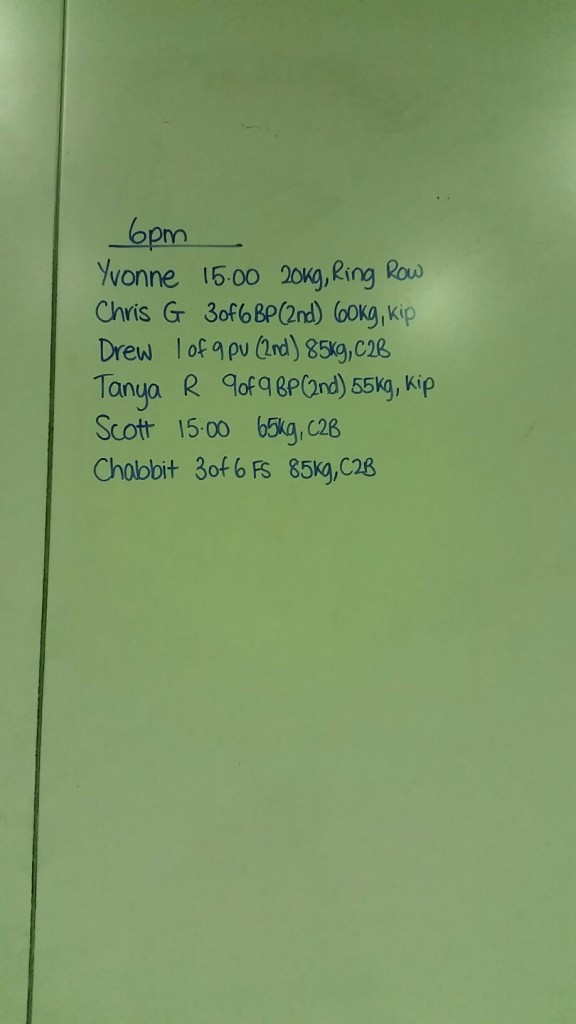 6pm
Yvonne 15:00 20kg, Ring Row
Chris G 3of6 BP (2nd) 60kg, Kip
Drew 1 of 9 PU (2nd) 85kg, C2B
Tanya R 9of9 BP (2nd) 55kg, Kip
Scott 15:00 65kg, C2B
Chabbit 3of6 FS 85kg, C2B